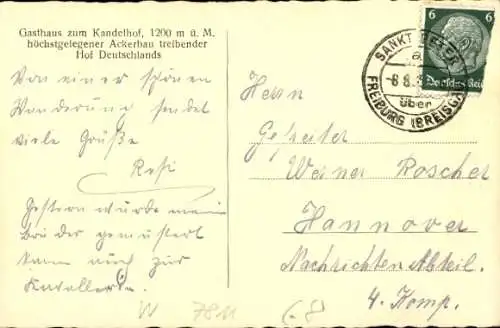 Gasthaus zum Kandelhof, 1200 m ü. M.
höchstgelegener Ackerbau treibender
Hof Deutschlands
Von einer schönen
Wanderung sendet
viele Grüße
Resi
Gestern wurde mein
Bruder gemustert
kam auch zur
Kavallerie.
SANKT PETER
-8 8.3
über
FREIBURG (BREISGAU)
6 6
Deutsches Reich
Herrn
Gefreiter
Werner Roscher
Hannover
Nachrichten Abteil.
4. Komp.
W 7811